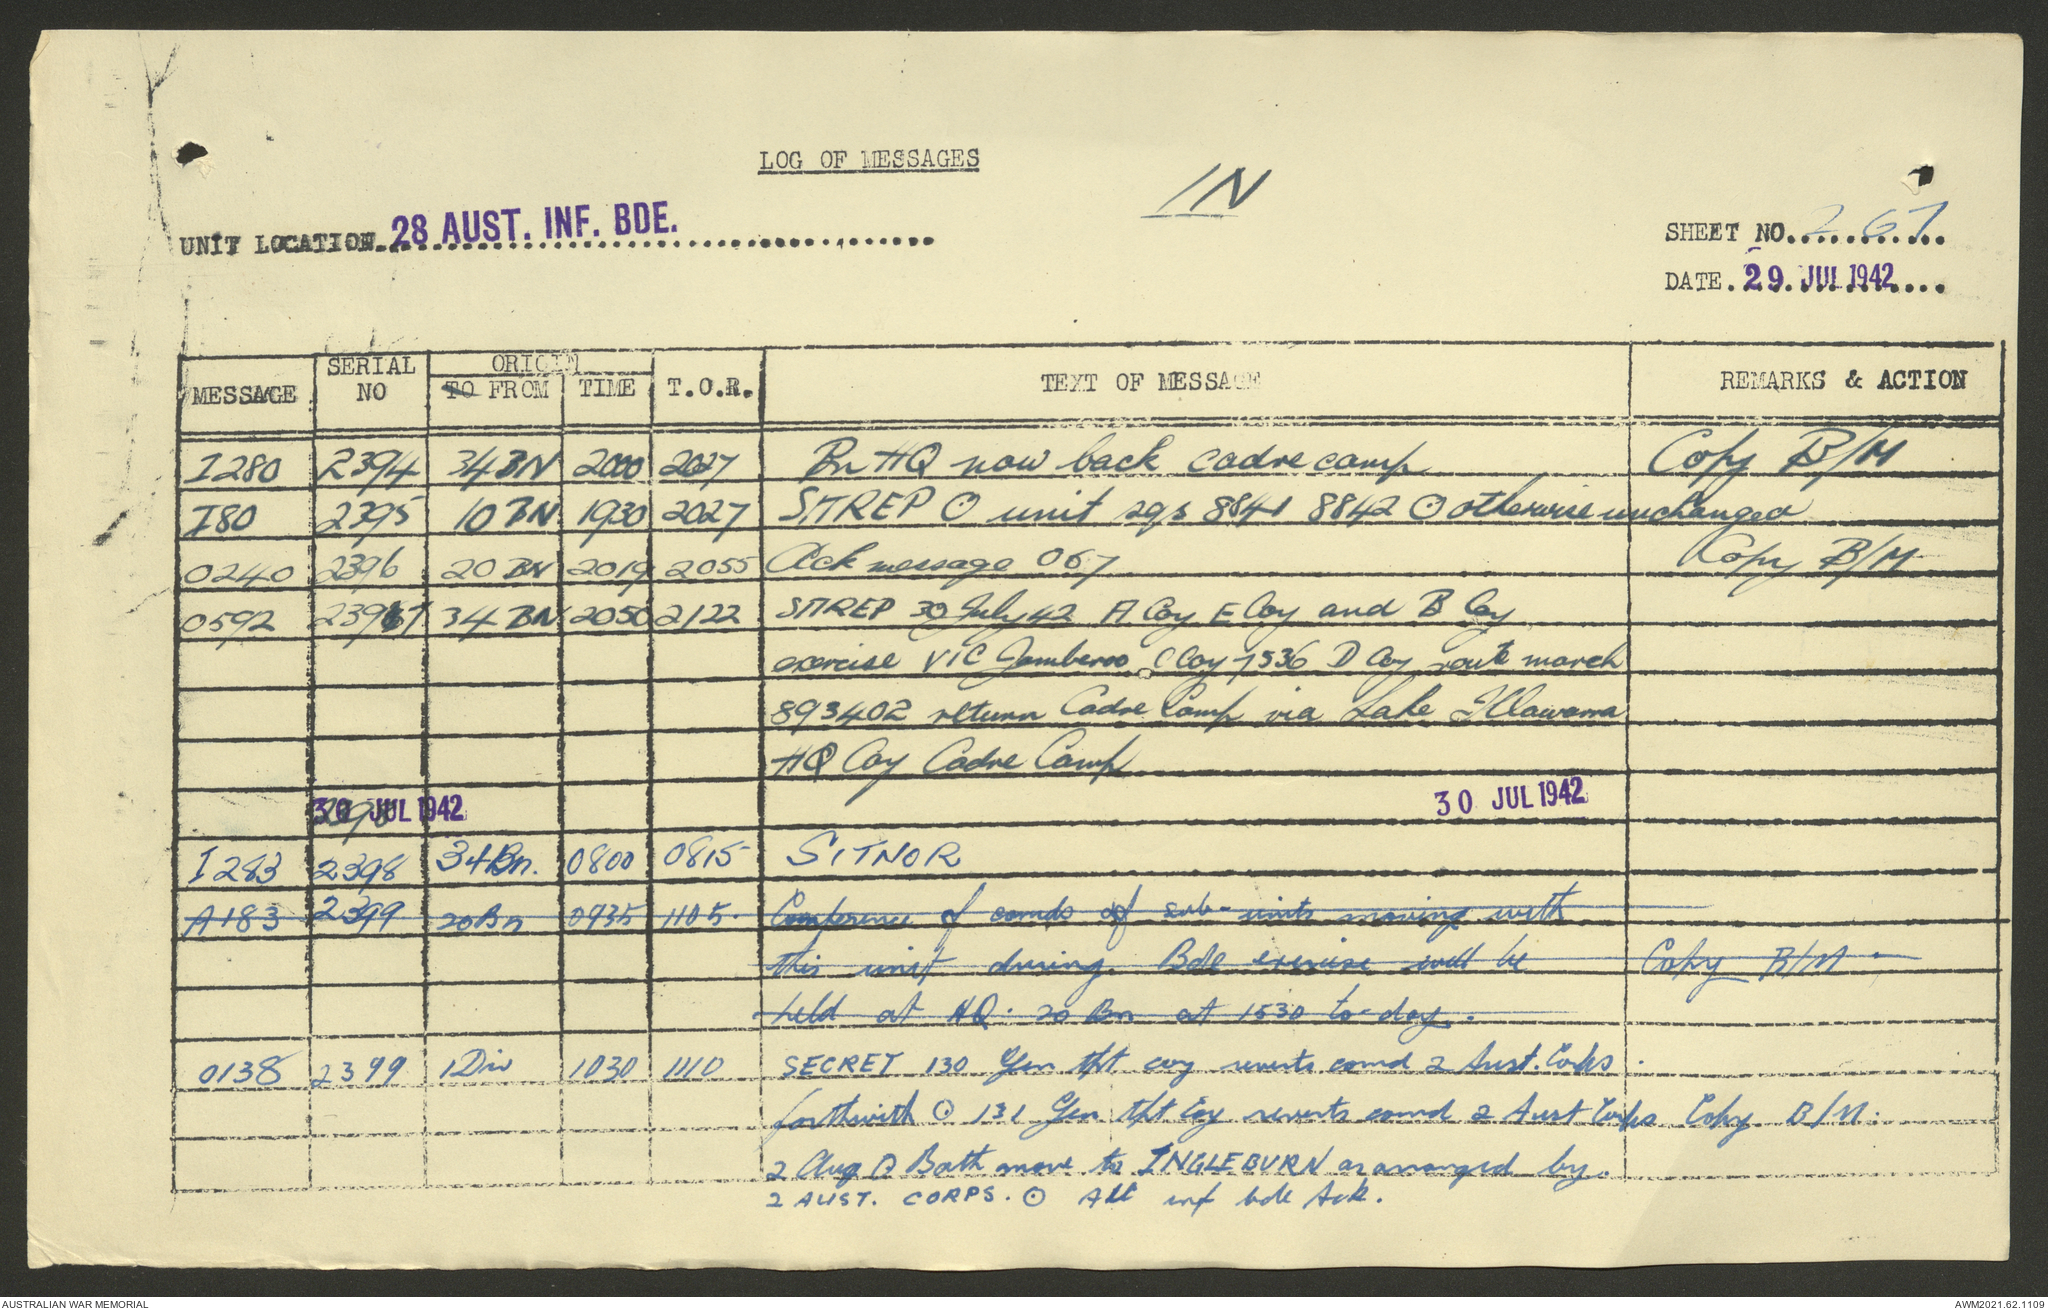 LOG OF MESSAGES
IN
UNIT LOCATION. 28 AUST. INF. BDE.
SHEET NO. 267
DATE. 29 JUL 1942
MESSAGE SERIAL NO ORIGIN TO FROM TIME T.O.R. TEXT OF MESSAGE REMARKS & ACTION
I280 2394 34 BN 2000 2027 Bn HQ now back cadre camp Copy B/M
I80 2395 10 BN 1930 2027 SITREP O unit sqs 8841 8842 O otherwise unchanged
0240 2396 20 BN 2019 2055 Ack message 067 Copy B/M
0592 2397 34 BN 2050 2122 SITREP 30 July 42 A Coy E Coy and B Coy
exercise VIC Jamberoo C Coy 7536 D Coy route march
893402 return Cadre Camp via Lake Illawarra
HQ Coy Cadre Camp
30 JUL 1942 30 JUL 1942
I283 2398 34 Bn. 0800 0815 SITNOR
A183 2399 20 Bn 0935 1105. Conference of comds of sub-units moving with
this unit during Bde exercise will be Copy B/M
held at HQ. 20 Bn at 1530 to-day.
0138 2399 1 Div 1030 1110 SECRET 130 Gen tpt coy reverts comd 2 Aust. Corps
forthwith O 131 Gen tpt Coy reverts comd 2 Aust Corps Copy B/M.
2 Aug O Both move to INGLEBURN as arranged by
2 AUST. CORPS. O All inf bde Ack.
AUSTRALIAN WAR MEMORIAL AWM2021.62.1109